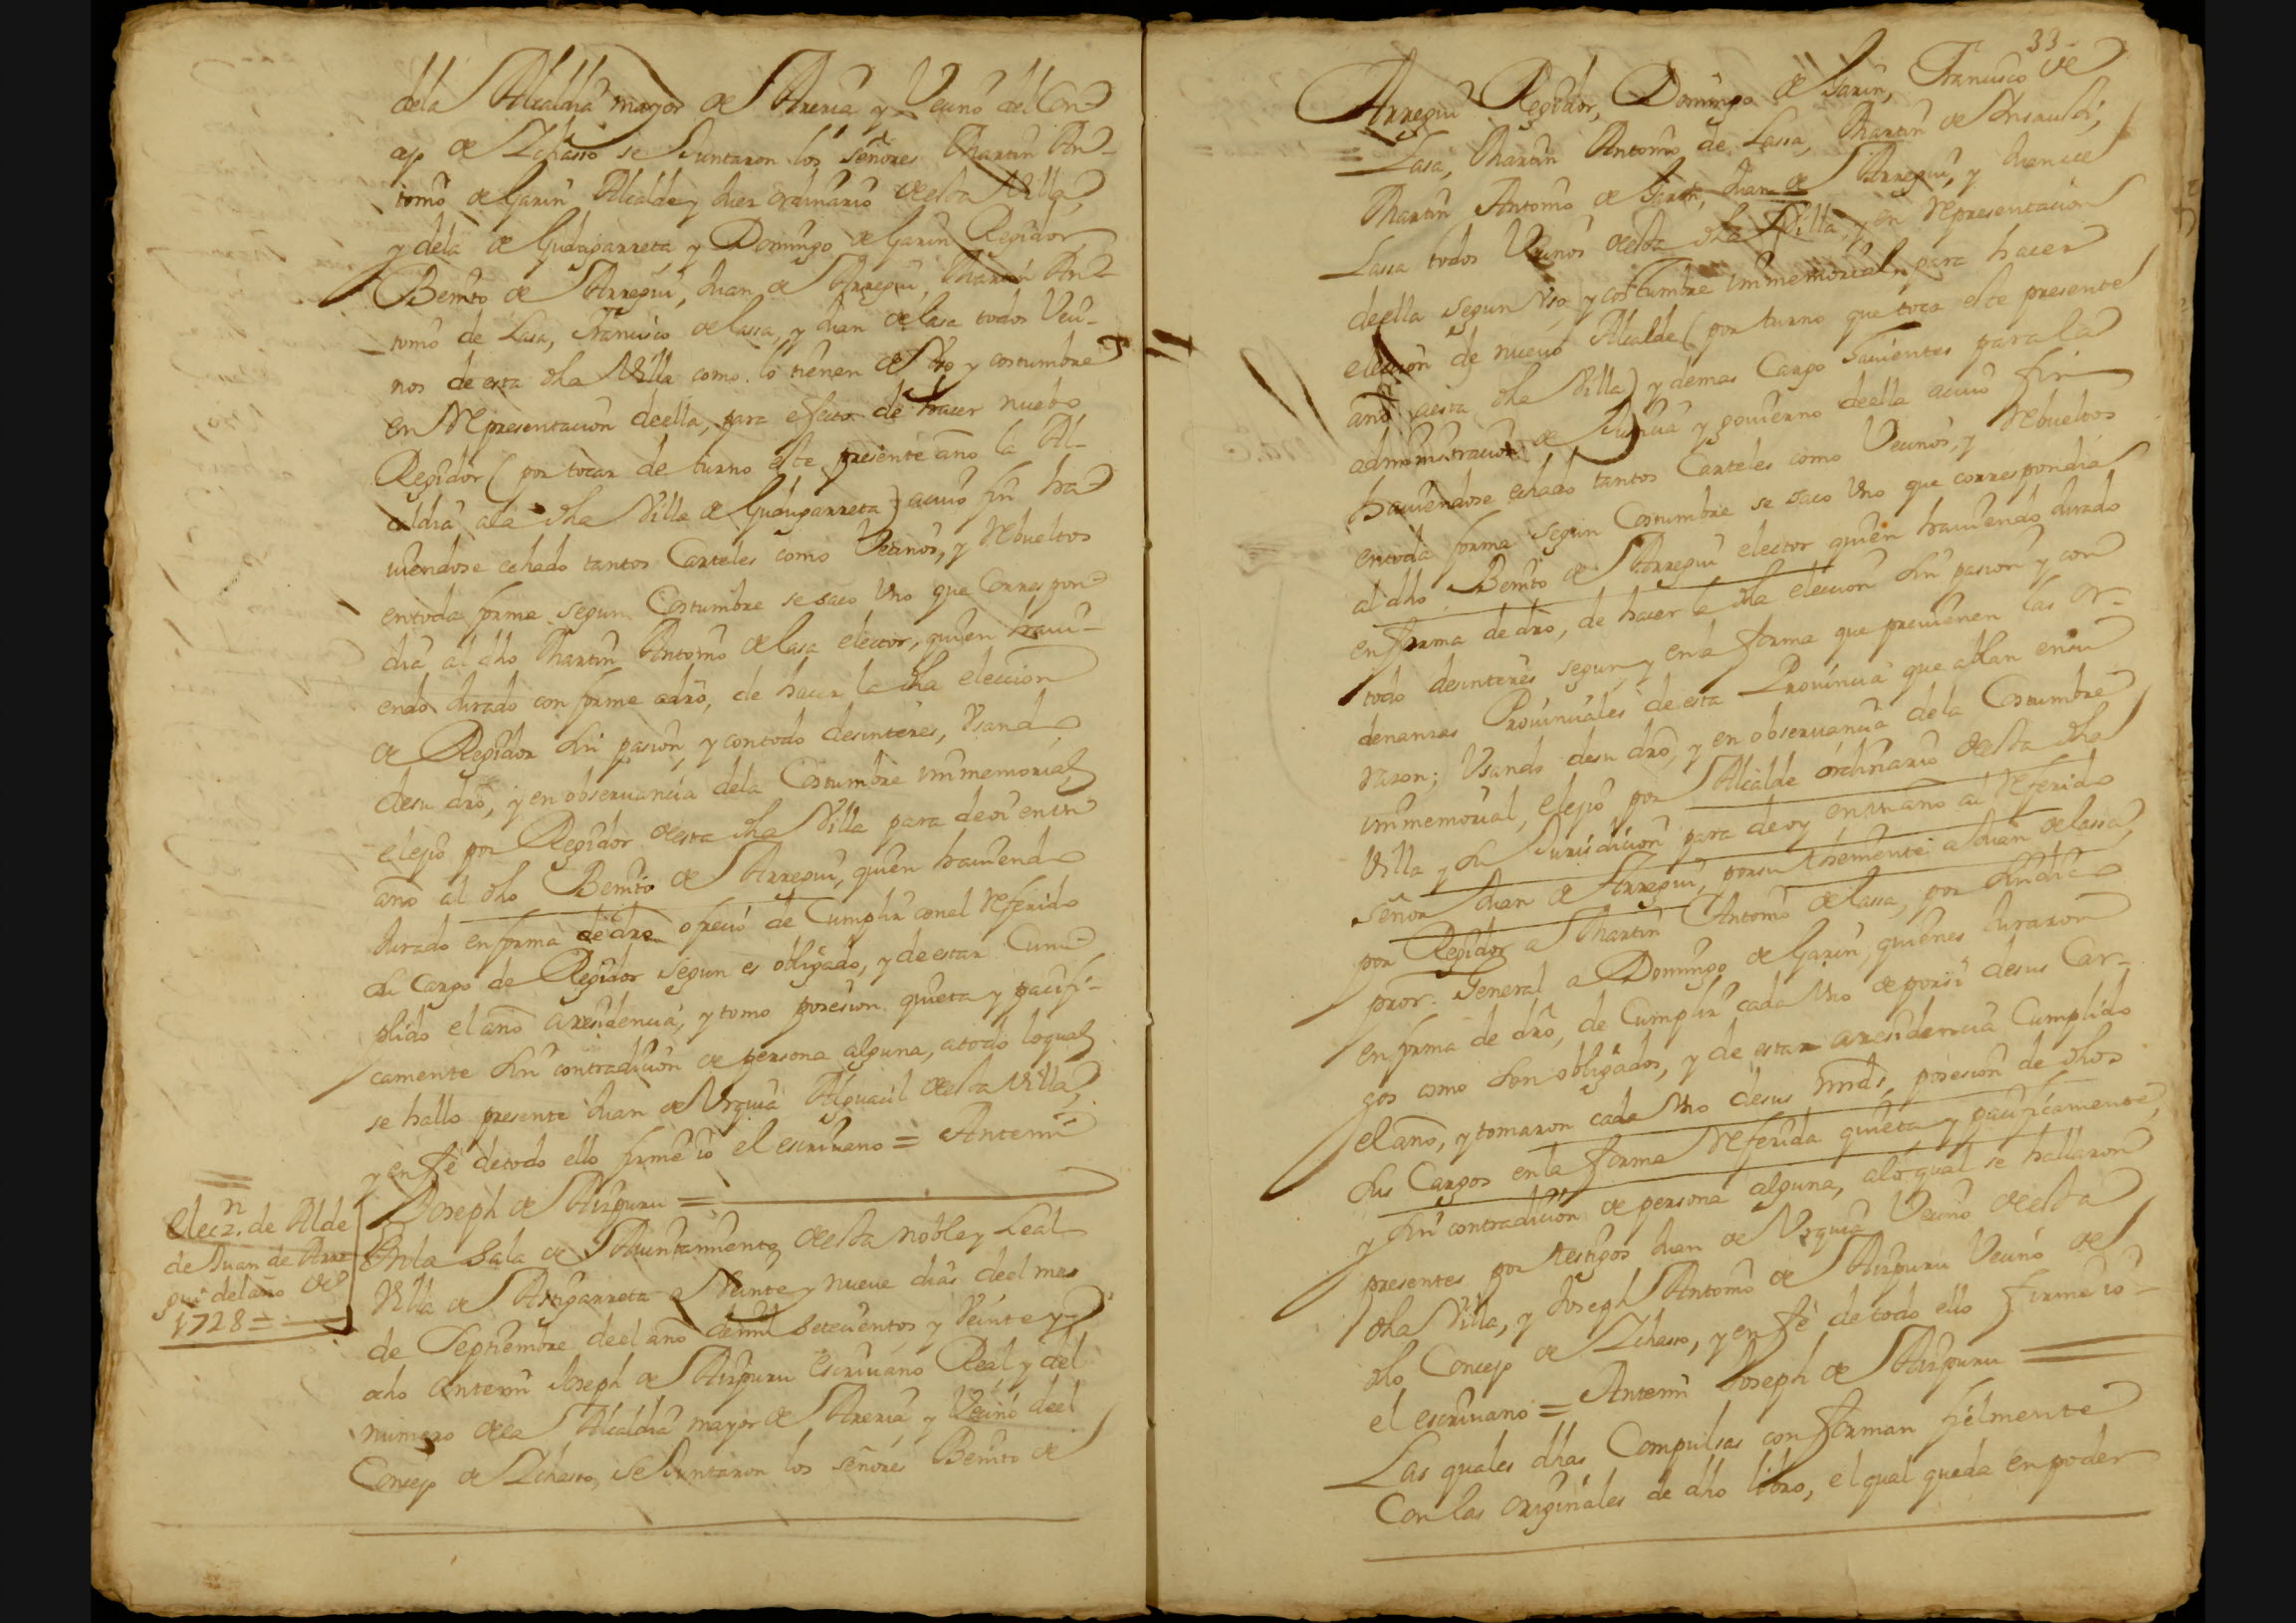 dela Alcaldia mayor de Areria y Vecino del Con-
cejo de Ychasso se Juntaron los señores Martin An-
tonio de Garin Alcalde y Juez ordinario de esta Villa,
y dela de Gudugarreta y Domingo de Garin Regidor,
Benito de Arregui, Juan de Arregui, Martin An-
tonio de Lasa, Francisco de Lassa, y Juan de Lasa todos Veci-
nos de esta dha Villa como lo tienen de Vso y costumbre
en Representacion de ella, para efecto de hacer nuebo
Regidor (por tocar de turno este presente año la Al-
caldia ala dha Villa de Gudugarreta) a cuio fin ha-
uiendose echado tantos Carteles como Vecinos, y Rebueltos
en toda forma segun Costumbre se saco Vno que Correspon-
dia al dho Martin Antonio de Lasa elector, quien haui-
endo Jurado conforme a dro, de hacer la dha eleccion
de Regidor sin pasion, y con todo desinteres, Vsando
de su dro, y en obseruancia dela Costumbre immemorial
elejio por Regidor de esta dha Villa para de oi en un
año al dho Benito de Arregui, quien hauiendo
Jurado en forma de dro ofrecio de Cumplir con el Referido
su Cargo de Regidor segun es obligado, y de estar Cum-
plido el año a residencia, y tomo posesion quieta y pacifi-
camente sin contradicion de persona alguna, a todo lo qual
se hallo presente Juan de Vrquia Alguacil de esta Villa,
y en fè de todo ello firmè io el escriuano = Antemi
Joseph de Aizpuru =
Elecn. de Alde
de Juan de Arre
gui del año de
1728 =
En la Sala de Aiuntamiento de esta noble y Leal
Villa de Astigarreta a Veinte y nueve dias de el mes
de Septiembre de el año de mil setecientos y Veinte y
ocho antemi Joseph de Aizpuru escriuano Real y del
numero de la Alcaldia mayor de Areria, y Vecino de el
Concejo de Ychasso, se Juntaron los señores Benito de
33
Arregui Regidor, Domingo de Garin, Francisco de
Lasa, Martin Antonio de Lassa, Martin de Insausti,
Martin Antonio de Garin, Juan de Arregui, y Juan de
Lassa todos Vecinos de esta dha Villa, y en Representacion
de ella segun Vso, y costumbre immemorial, para hacer
eleccion de nueuo Alcalde (por turno que toca este presente
año a esta dha Villa) y demas Cargo hauientes para la
administracion de Justicia y gouierno de ella a cuio fin
hauiendose echado tantos Carteles como Vecinos, y Rebueltos
en toda forma segun Costumbre se saco Vno que correspondia
al dho Benito de Arregui elector quien hauiendo Jurado
en forma de dro, de hacer la dha eleccion sin pasion y con
todo desinteres segun y en la forma que preuienen las or-
denanzas Prouinciales de esta Prouincia que ablan en su
razon; Vsando de su dro, y en obseruancia dela Costumbre
immemorial, elejio por Alcalde ordinario de esta dha
Villa y su Jurisdicion para de oy en un año al Referido
señor Juan de Arregui, por su theniente a Juan de lassa,
por Regidor a Martin Antonio de lassa, por Sindico
pror. General a Domingo de Garin, quienes Juraron
en forma de dro, de Cumplir cada Vno de por si de sus Car-
gos como son obligados, y de estar a residencia Cumplido
el año, y tomaron cada Vno de sus mrds, posesion de dhos
sus Cargos en la forma Referida quieta y pacificamente,
y sin contradicion de persona alguna, a lo qual se hallaron
presentes por testigos Juan de Vrquia Vecino de esta
dha Villa, y Joseph Antonio de Aizpuru Vecino de
dho Concejo de Ychasso, y en fè de todo ello firmè io
el escriuano = Antemi Joseph de Aizpuru
Las quales dhas Compulsas conforman fielmente
Con las originales de dho libro, el qual queda en poder